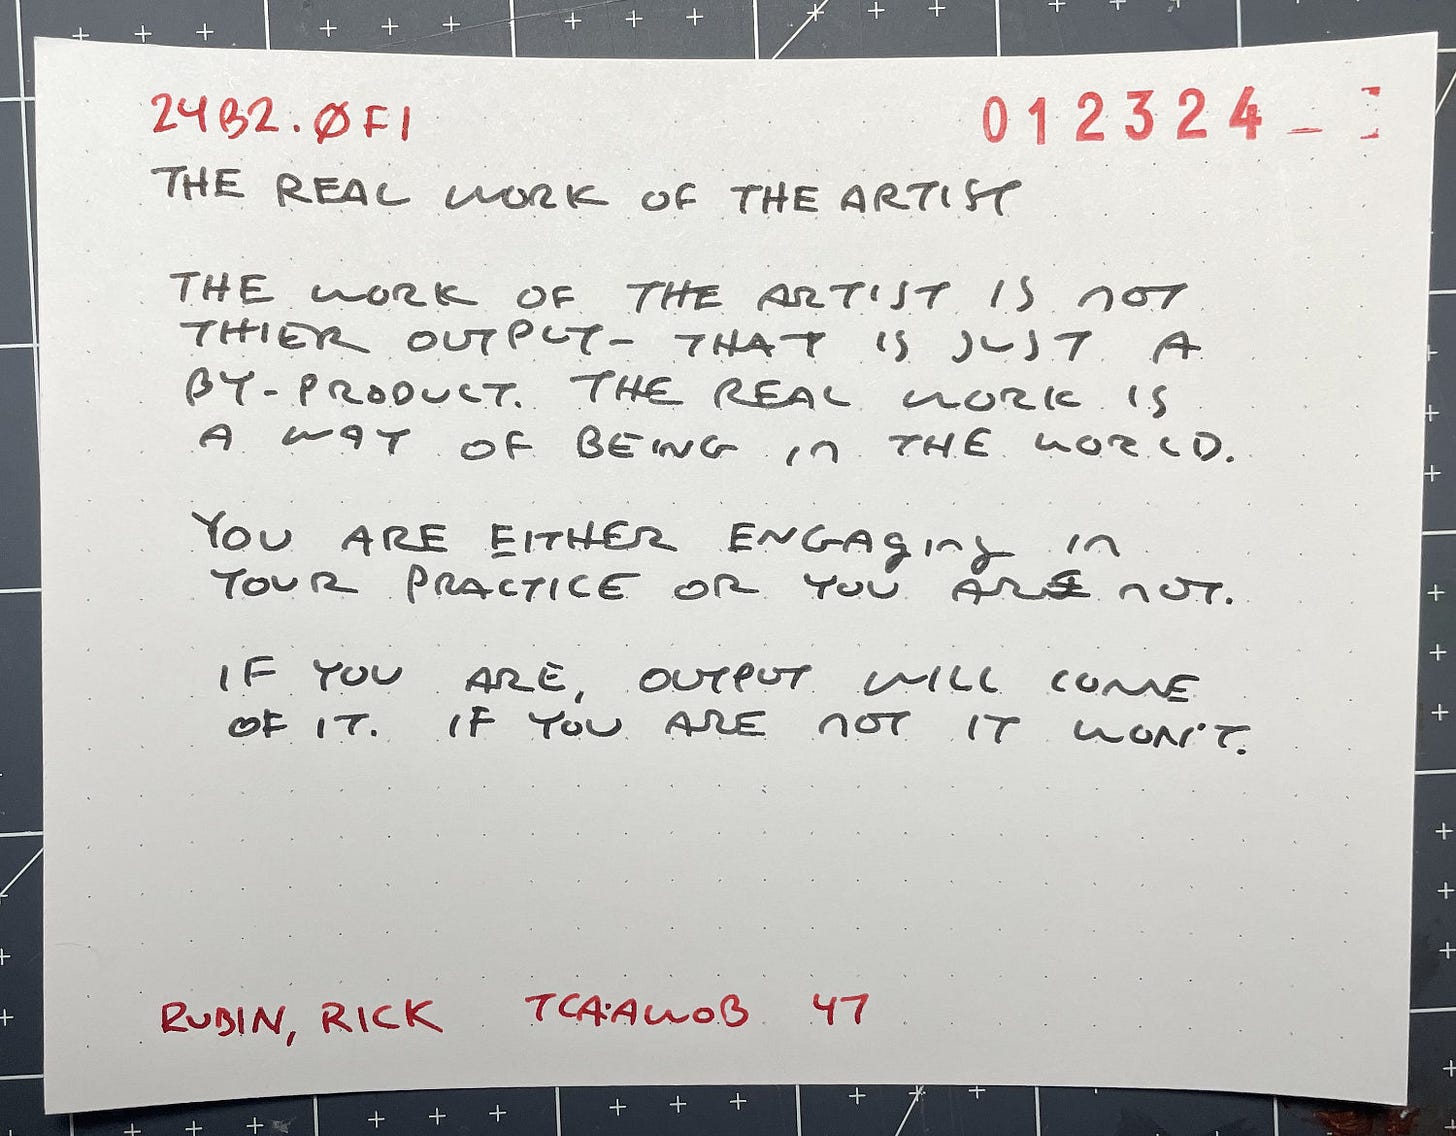 24B2.ØF1
012324_
THE REAL WORK OF THE ARTIST
THE WORK OF THE ARTIST IS NOT
THIER OUTPUT- THAT IS JUST A
BY-PRODUCT. THE REAL WORK IS
A WAY OF BEING in THE WORLD.
YOU ARE EITHER ENGAging in
YOUR PRACTICE OR YOU ARE NOT.
IF YOU ARE, OUTPUT WILL COME
OF IT. IF YOU ARE NOT IT WON'T.
RUBIN, RICK TCA:AWOB 47